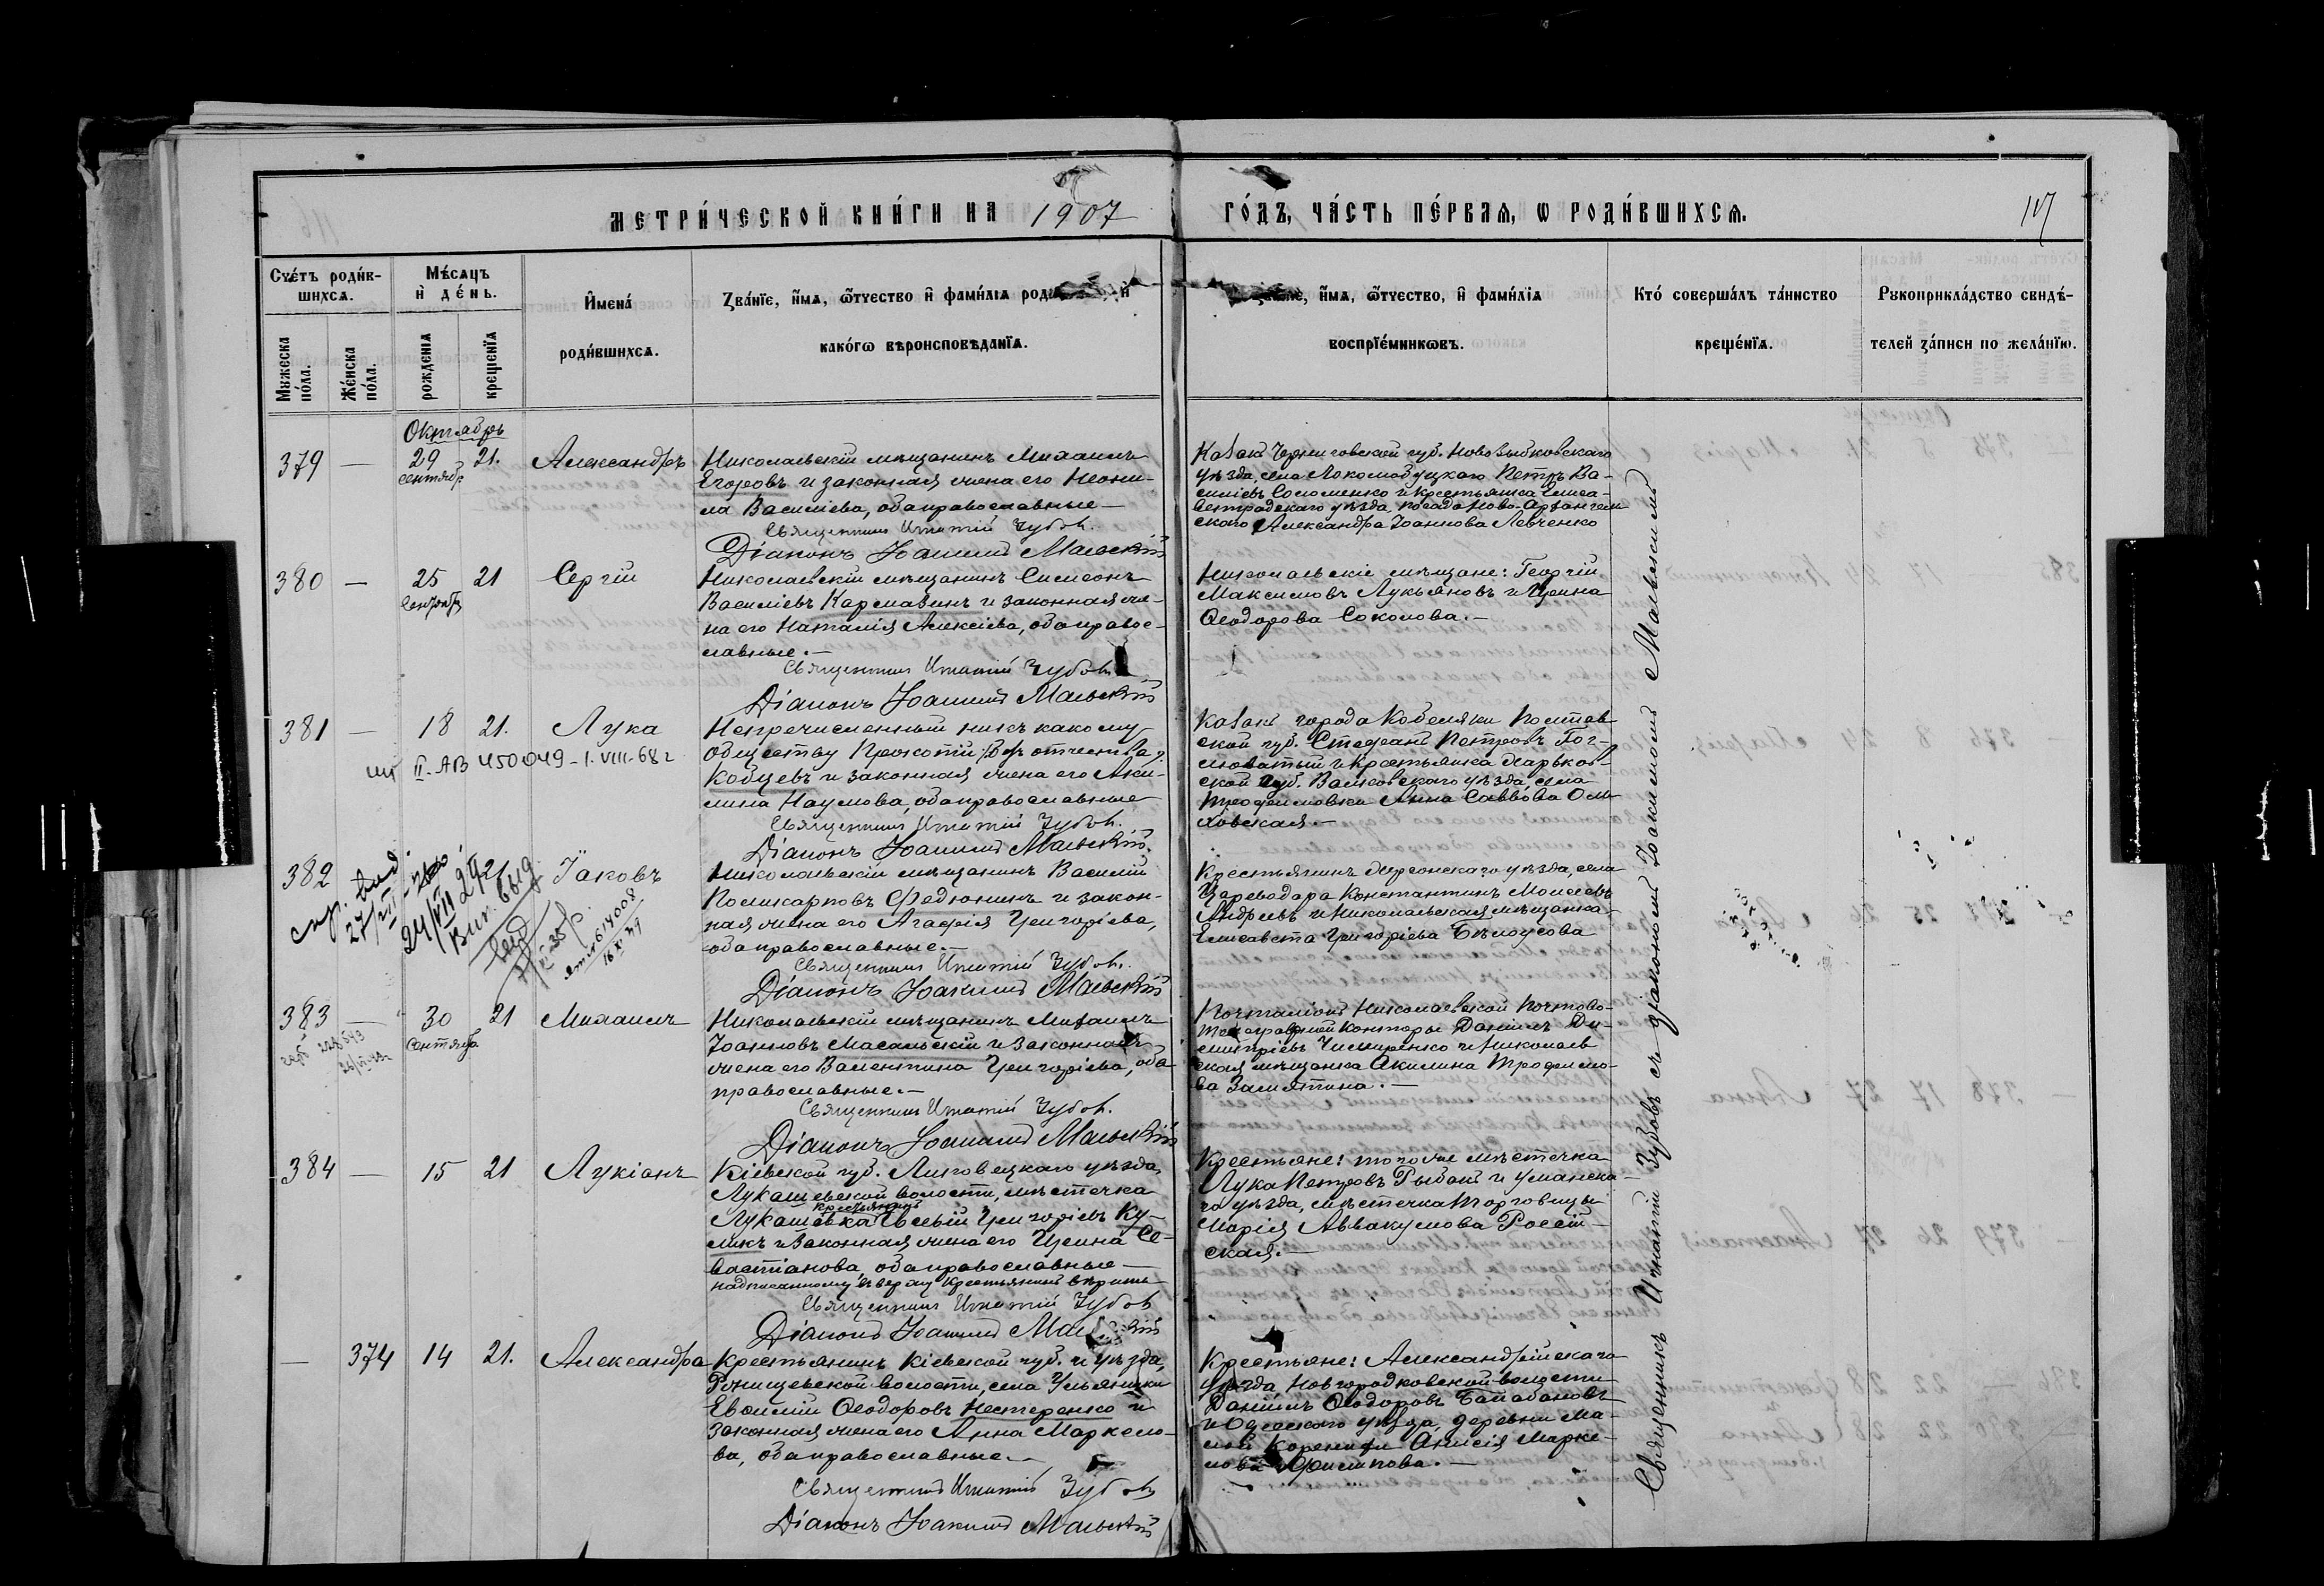 МЕТРИ́ЧЕСКОЙ КНИ́ГИ НА 1907
ГО́ДЪ, ЧА́СТЬ ПЕ́РВАѦ, Ѡ РОДИ́ВШИХСѦ.
117
Счéтъ роди́в-
шихсѧ.
Мѣ́сѧцъ
и҆ де́нь.
И҆мена́
роди́вшихсѧ.
Зва́нїе, и҆́мѧ, ѻ҆́тчество и҆ фами́лїѧ и҆
како́гѡ вѣроисповѣ́данїѧ.
и҆́мѧ, ѻ҆́тчество, и҆ фами́лїѧ
воспрїе́мникѡвъ.
Кто́ соверша́лъ та́инство
креще́нїѧ.
Рукоприкла́дство свидѣ́-
телей за́писи по жела́нїю.
Мужеска
по́ла.
Же́нска
по́ла.
рожденїѧ
крещенїѧ
Октябрь
379 — 29 21. Александръ
сентябр.
Николаевскій мѣщанинъ Михаилъ
Егоровъ и законная жена его Неони-
ла Василіева, оба православные —
Священникъ Игнатій Зубовъ.
Діаконъ Іоакимъ Мальскій
Козакъ Черниговской губ. Новозыбковскаго
уѣзда, села Петръ Ва-
силіевъ Соломенко и крестьянка Елиса-
ветградскаго уѣзда, посада Ново-Архангель
скаго Александра Іоаннова Левченко
380 — 25 21 Сергій
Сентябр
Николаевскій мѣщанинъ Симеонъ
Василіевъ Кармазинъ и законная же-
на его Наталія Алексіева, оба правос-
лавные. —
Священникъ Игнатій Зубовъ
Діаконъ Іоакимъ Мальскій
Николаевскіе мѣщане: Георгій
Максимовъ Лукьяновъ и Ирина
Ѳеодорова Соколова. —
381 — 18 21. Лука
II-АВ 450049 - 1.VIII-68 г
Непричисленный никъ какому
обществу Прокопій (безъ отчества)
Кобцевъ и законная жена его Аки-
лина Наумова, оба православные
Священникъ Игнатій Зубовъ.
Діаконъ Іоакимъ Мальскій.
Козакъ города Кобеляки Полтав-
ской губ. Стефанъ Петровъ Бог-
словатый и крестьянка Харьков-
ской губ. Валковскаго уѣзда, села
Трофимовки Анна Саввова Оль
ховская. —
382 21. Іаковъ
Николаевскій мѣщанинъ Василій
Поликарповъ Федюнинъ и закон-
ная жена его Агафія Григоріева,
оба православные. —
Священникъ Игнатій Зубовъ.
Діаконъ Іоакимъ Мальскій
Крестьянинъ Херсонскаго уѣзда, села
Цареводара Константинъ Моисеевъ
Андреевъ и Николаевская мѣщанка
Елисавета Григоріева Бѣлоусова
383 — 30 21 Михаилъ
Сентября
Николаевскій мѣщанинъ Михаилъ
Іоанновъ Масальскій и законная
жена его Валентина Григоріева, оба
православные. —
Священникъ Игнатій Зубовъ.
Діаконъ Іоакимъ Мальскій
Почталіонъ Николаевской почтово-
телеграфной конторы Даніилъ Ди-
митріевъ Чемиренко и Николаев
ская мѣщанка Акилина Трофимо-
ва Замятина. —
384 — 15 21 Лукіанъ
Кіевской губ. Липовецкаго уѣзда,
Лукашевской волости, мѣстечка
крестьянинъ
Лукашевка Евсевій Григоріевъ Ку-
ликъ и законная жена его Ирина Се-
вастіанова, оба православные —
надписанному въ верху крестьянинъ вѣрить
Священникъ Игнатій Зубовъ
Діаконъ Іоакимъ Мальскій
Крестьяне: того же мѣстечка
Лука Петровъ Рыбакъ и Уманска-
го уѣзда, мѣстечка Торговицы
Марія Аввакумова Россій-
ская. —
— 374 14 21. Александра
Крестьянинъ Кіевской губ. и уѣзда,
волости, села Ульяники
Евѳимій Ѳеодоровъ Нестеренко и
законная жена его Анна Маркело-
ва, оба православные. —
Священникъ Игнатій Зубовъ
Діаконъ Іоакимъ Мальскій
Крестьяне: Александрійскаго
уѣзда, Новгородковской волости
Даніилъ Ѳеодоровъ Балабановъ
и Одесскаго уѣзда, деревни Ма-
лой Коренихи Анисія Марке-
лова Филипова. —
Священникъ Игнатій Зубовъ съ діакономъ Іоакимомъ Мальскимъ